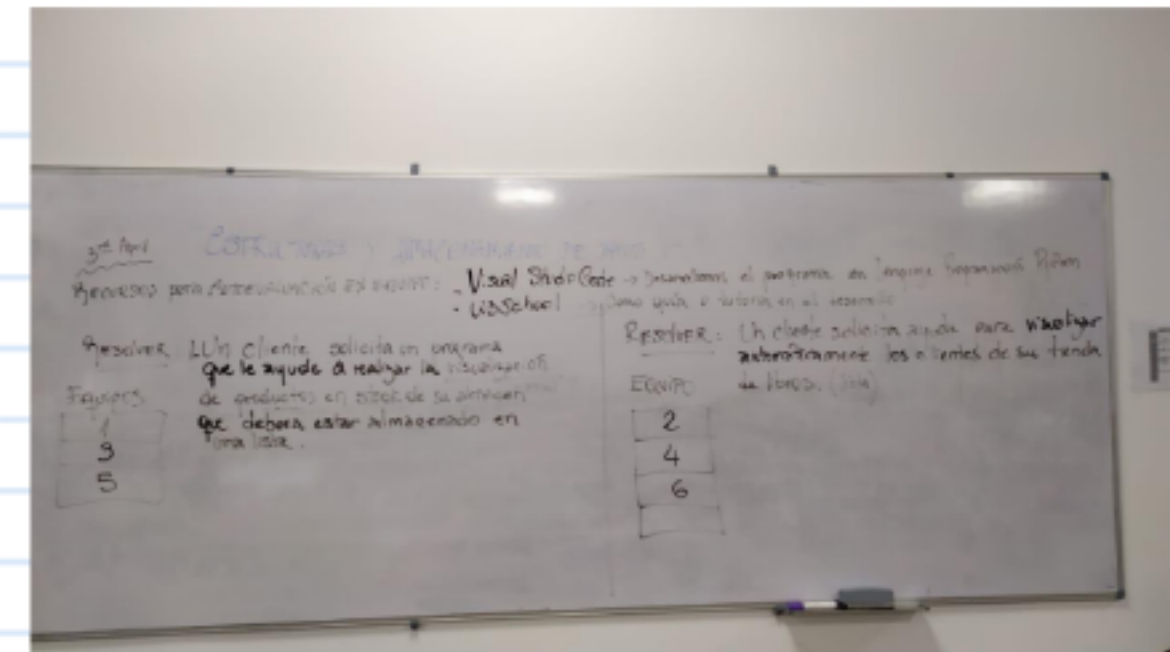 ESTRUCTURAS Y ALMACENAMIENTO DE DATOS
RECURSOS para AUTOEVALUACIÓN EN EQUIPO:
- Visual Studio Code → el programa en lenguaje Programación
- W3School como guía o tutoría en el desarrollo
Resolver Un cliente solicita un
que le ayude a realizar la
de productos en stock de su almacen
que debera estar almacenado en
una lista.
Equipos
1
3
5
RESOLVER: Un cliente solicita ayuda para visualizar
automáticamente los clientes de su tienda
de libros. (lista)
EQUIPO
2
4
6